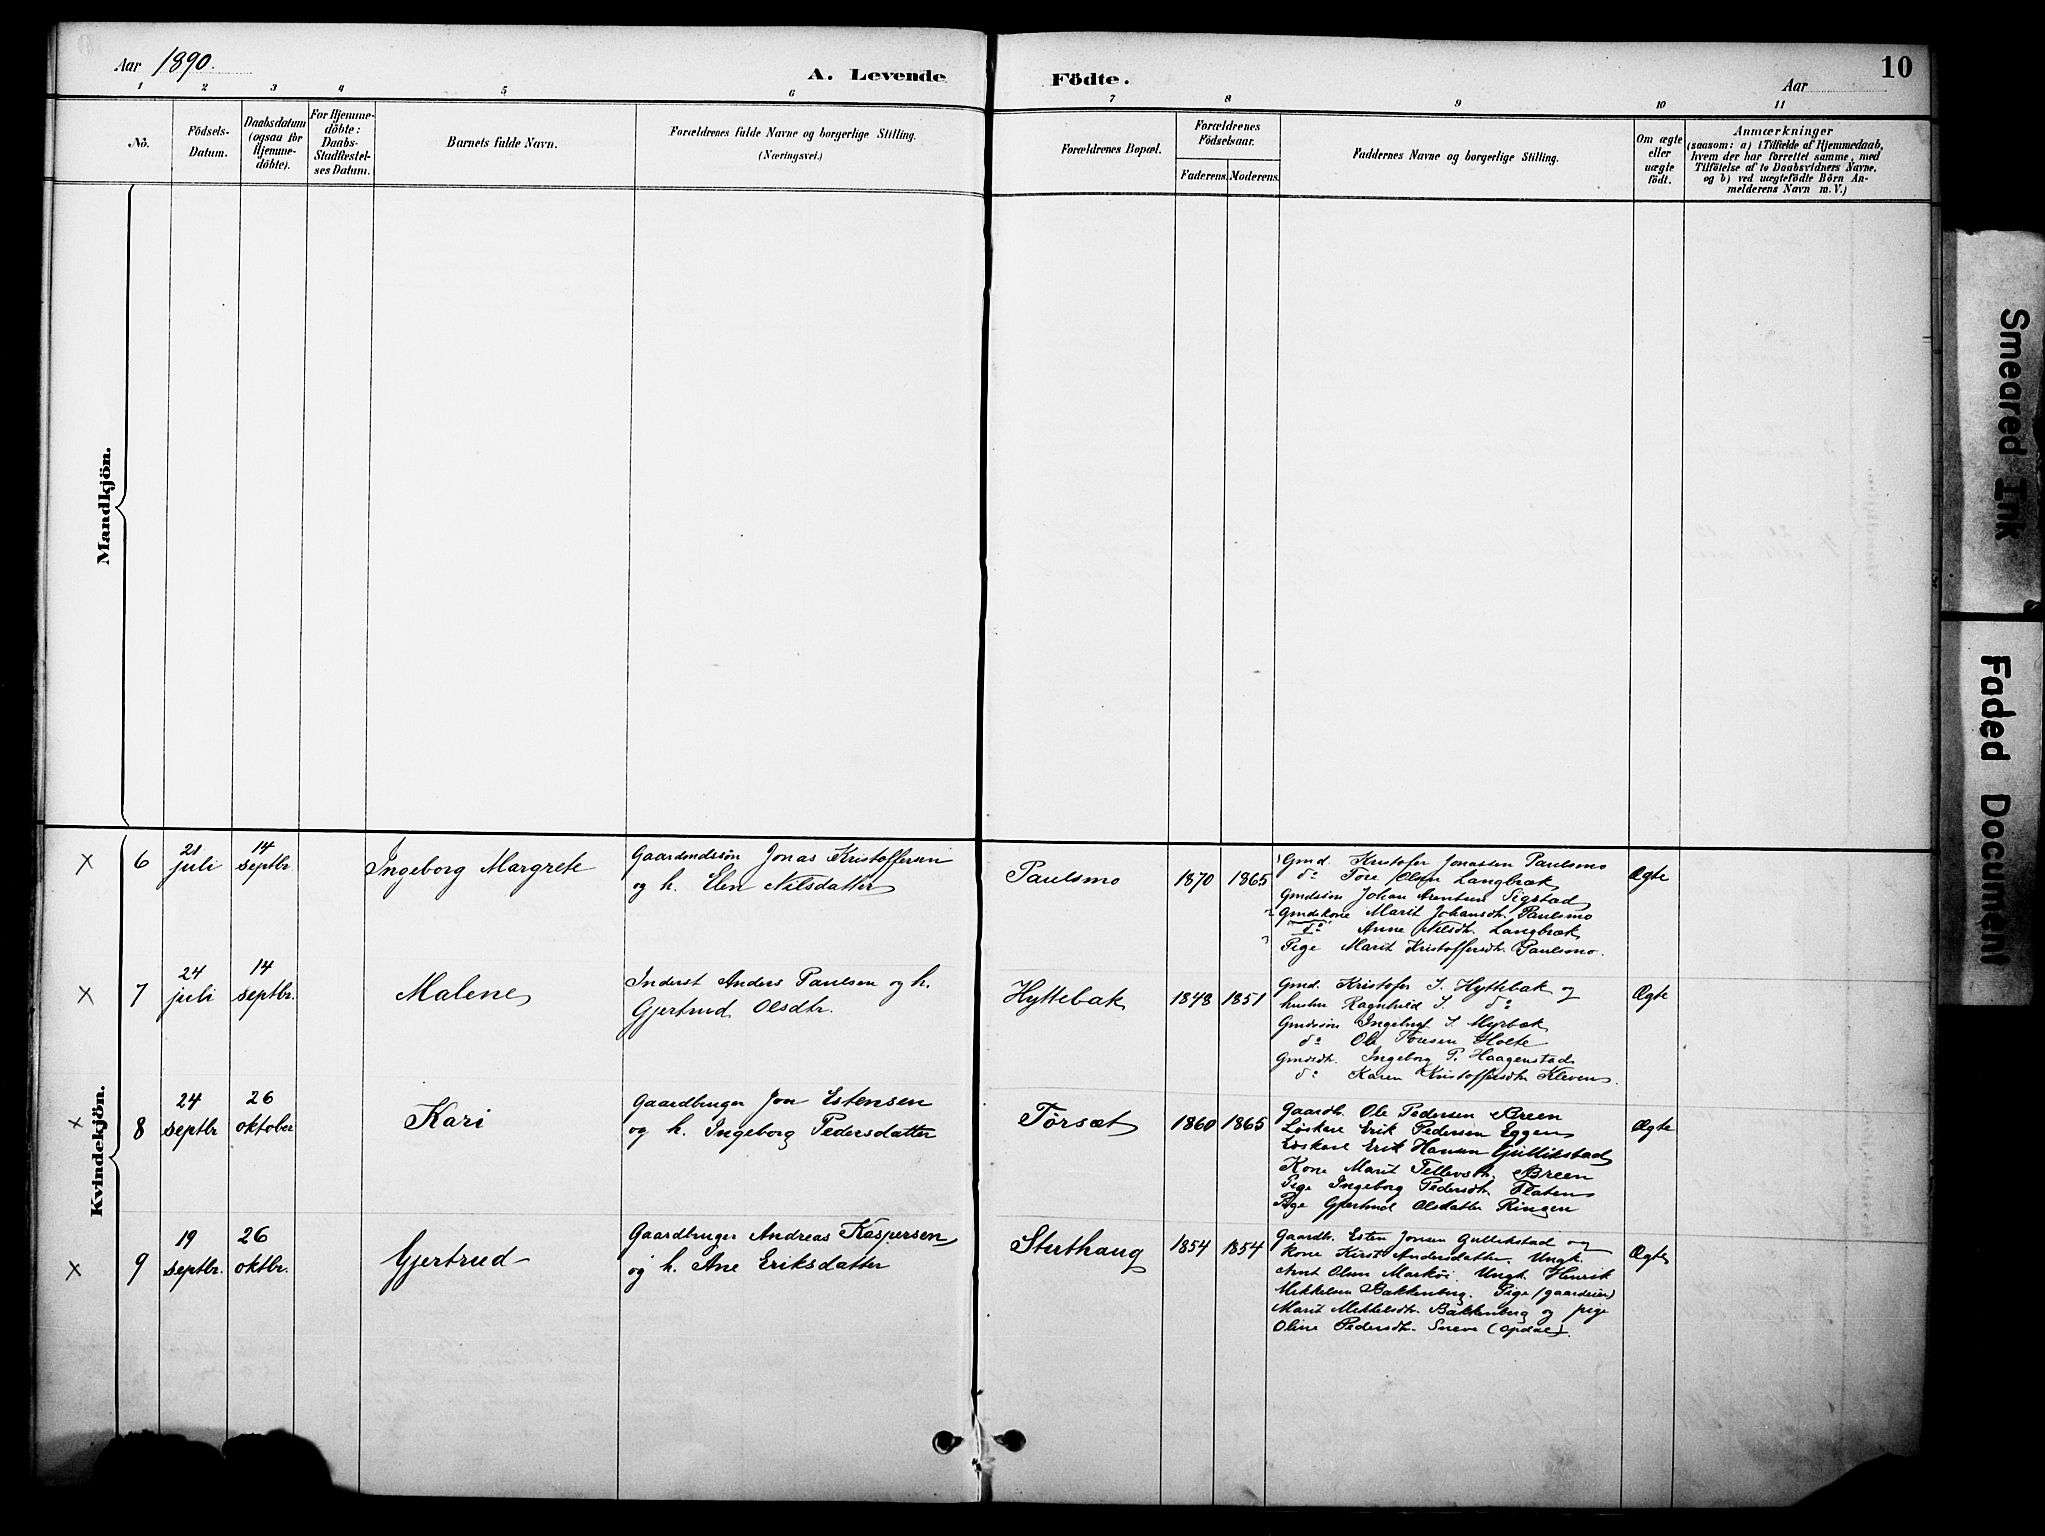 Aar 1890.
A. Levende
Födte.
Aar
10
1 2 3 4 5 6 7 8 9 10 11
No.
Födsels-
Datum.
Daabsdatum
(ogsaa for
Hjemme-
döbte).
For Hjemme-
döbte:
Daabs-
Stadfæstel-
ses Datum.
Barnets fulde Navn.
Forældrenes fulde Navne og borgerlige Stilling.
(Næringsvei.)
Forældrenes Bopæl.
Forældrenes
Födselsaar.
Faderens. Moderens.
Faddernes Navne og borgerlige Stilling.
Om ægte
eller
uægte
födt.
Anmærkninger
(saasom: a) i Tilfælde af Hjemmedaab,
hvem der har forrettet samme, med
Tilföielse af to Daabsvidners Navne.
og b) ved uægtefödte Börn An-
melderens Navn m. V.)
Mandkjön.
Kvindekjön.
× 6
21
juli
14
septbr
Ingeborg Margrete
Gaardmdssön Jonas Kristoffersen
og h. Elen Nilsdatter
Paulsmo
1870 1865
Gmd. Kristofer Jonassen Paulsmo
do Tore Olsen Langbræk
Gmdssön Johan Arentsen Sigstad
Gmdskone Marit Johansdtr. Paulsmo
do Anne Nilsdtr. Langbræk
Pige Marit Kristoffersdtr. Paulsmo.
Ægte
× 7
24
juli
14
septbr.
Malene
Inderst Anders Paulsen og h.
Gjertrud Olsdtr.
Hyttebak
1848 1851
Gmd. Kristofer I. Hyttebak og
hustru Ragnhild I. do
Gmdssön Ingebrigt I. Myrbæk
do Ole Toresen Holte
Gmdsdtr. Ingeborg P. Haagenstad
do Karen Kristoffersdtr Kleven.
Ægte
× 8
24
septbr
26
oktober
Kari
Gaardbruger Jon Estensen
og h. Ingeborg Pedersdatter
Törsæt
1860 1865
Gaardb. Ole Pedersen Breen
Löskarl Erik Pedersen Eggen
Löskarl Erik Hansen Gullikstad
Kone Marit Tellevsdtr. Breen
Pige Ingeborg Pedersdtr. Flaten
Pige Gjertrud Olsdatter Ringen
Ægte
× 9
19
septbr.
26
oktbr.
Gjertrud
Gaardbruger Andreas Kaspersen
og h. Ane Eriksdatter
Stuthaug
1854 1854
Gaardb. Esten Jonsen Gullikstad og
Kone Kirsti Andersdatter. Ungk.
Arnt Olsen Marköi. Ungk. Henrik
Mikkelsen Bakkenberg. Pige (gaardeier)
Marit Mikkelsdtr. Bakkenberg og pige
Oline Pedersdtr. Sneve (Opdal).
Ægte
Smeared Ink
Faded Document